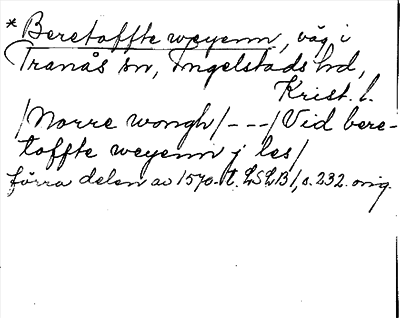 * Beretoffte weyenn, väg i
Tranås sn, Ingelstads hd,
Krist. l.
/Norre wongh/ - - - /Vid bere-
toffte weyenn j les/
förra delen av 1570-t. LSLB 1, s. 232. orig.